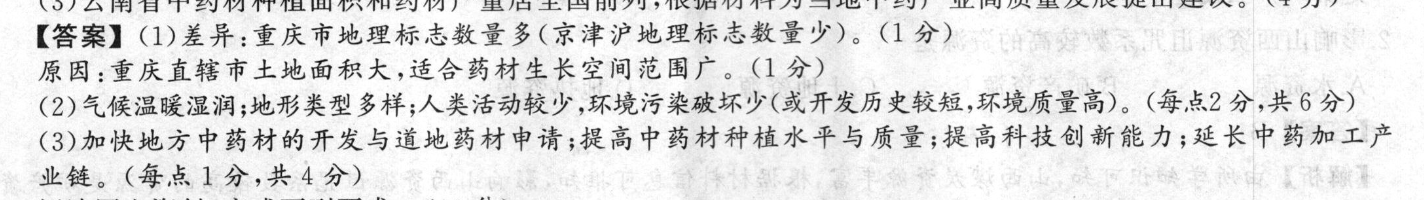 (3)云南省中药材种植面积和药材产量居全国前列,根据材料为当地中药产业高质量发展提出建议。(4分)
【答案】(1)差异:重庆市地理标志数量多(京津沪地理标志数量少)。(1分)
原因:重庆直辖市土地面积大,适合药材生长空间范围广。(1分)
(2)气候温暖湿润;地形类型多样;人类活动较少,环境污染破坏少(或开发历史较短,环境质量高)。(每点2分,共6分)
(3)加快地方中药材的开发与道地药材申请;提高中药材种植水平与质量;提高科技创新能力;延长中药加工产
业链。(每点1分,共4分)